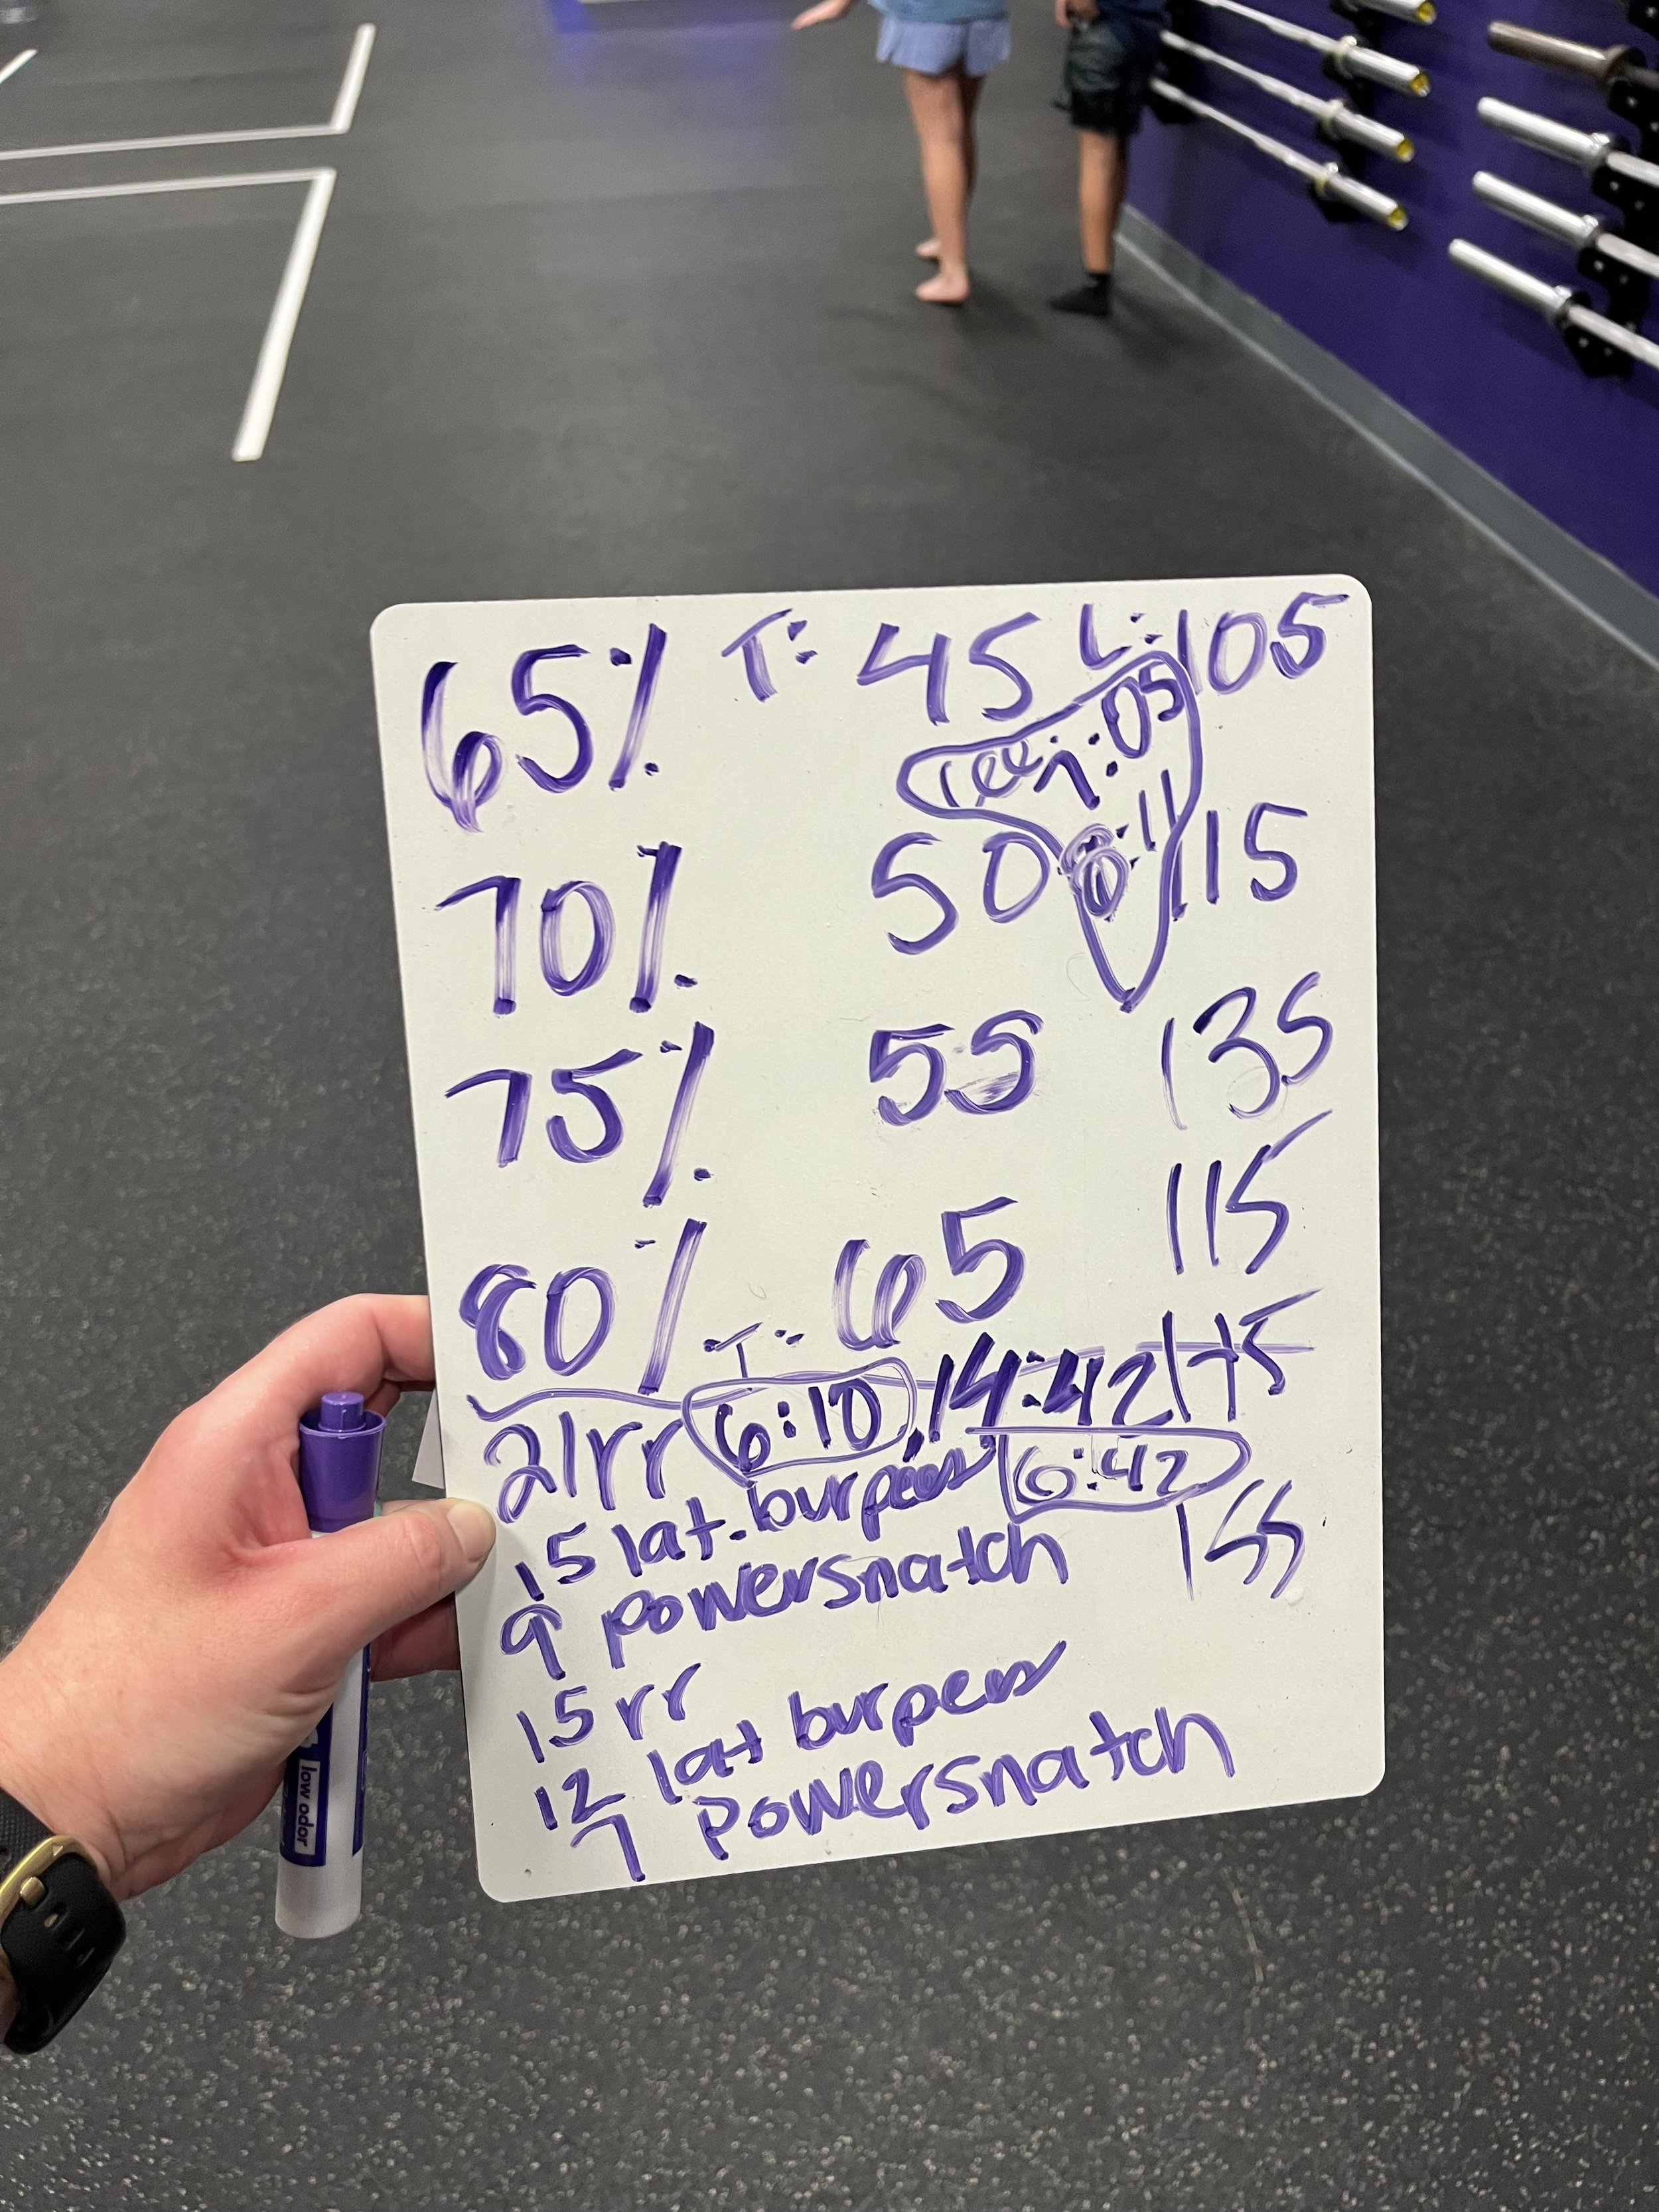 65% T: 45 L: 105
:05
70% 50 8:11 115
75% 55 135
115
80% 65
T:
21 rr 6:10 14:42 145
15 lat. burpees 6:42
155
9 powersnatch
15 rr
12 lat burpees
7 powersnatch
low odor